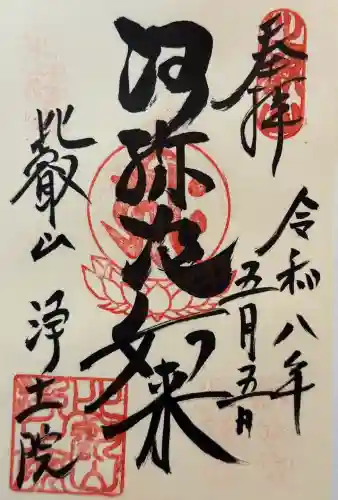 奉拝
令和八年
五月五日
阿弥陀如来
比叡山
浄土院